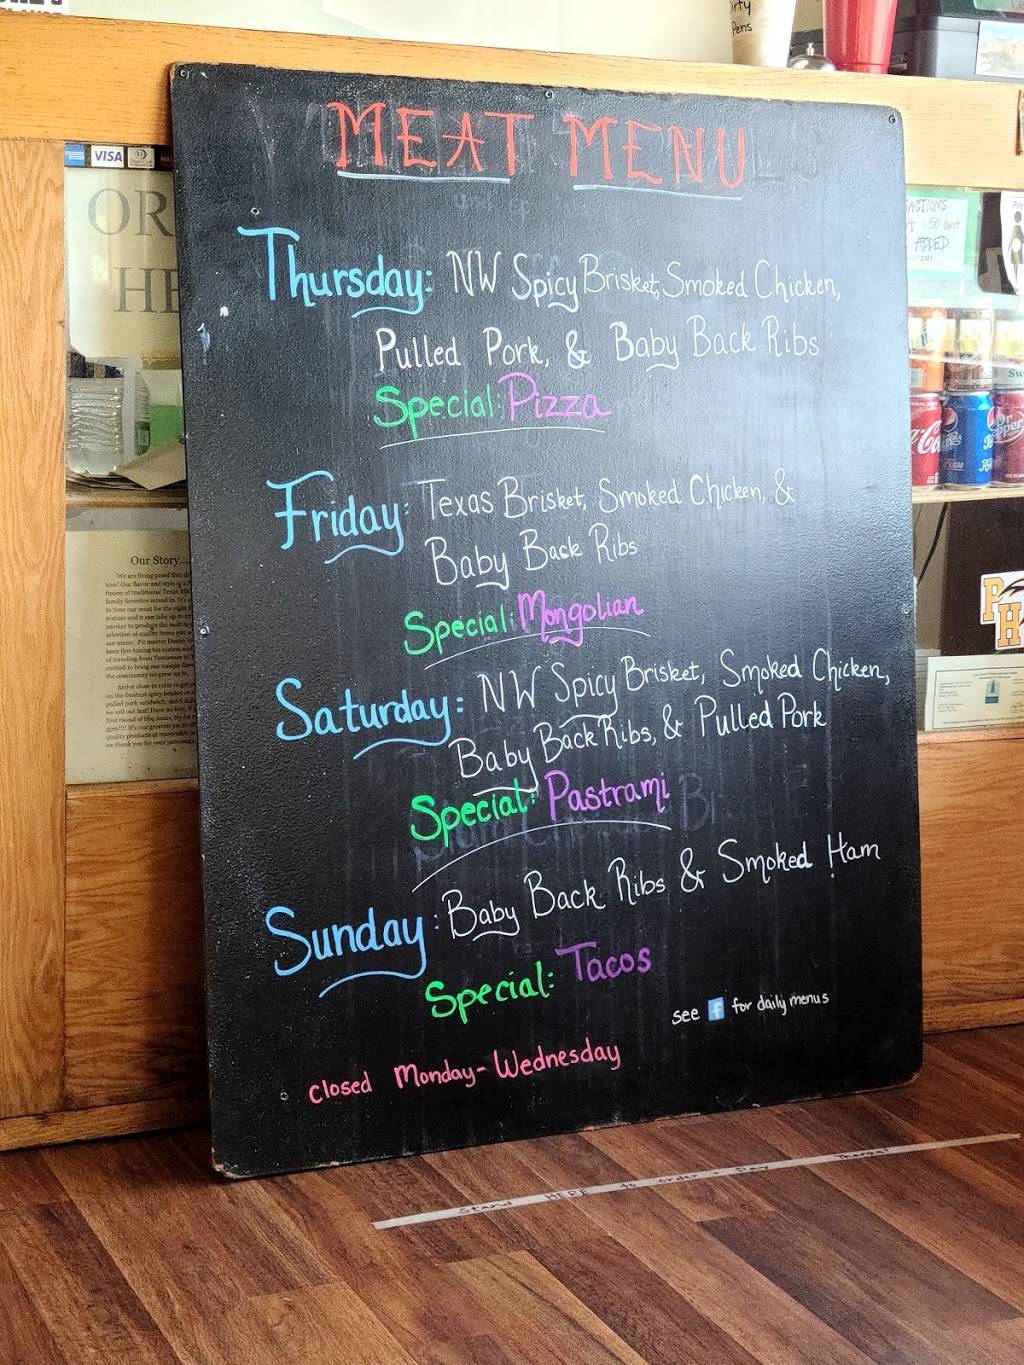 MEAT MENU
Thursday: NW Spicy Brisket, Smoked Chicken,
Pulled Pork, & Baby Back Ribs
Special: Pizza
Friday: Texas Brisket, Smoked Chicken, &
Baby Back Ribs
Special: Mongolian
Saturday: NW Spicy Brisket, Smoked Chicken,
Baby Back Ribs, & Pulled Pork
Special: Pastrami
Sunday: Baby Back Ribs & Smoked Ham
Special: Tacos
see f for daily menus
closed Monday-Wednesday
Stand HERE to order + Pay Thanks!
VISA
OR
HE
Our Story...
Pens
50 cent
ADDED
Dr Pepper
PH